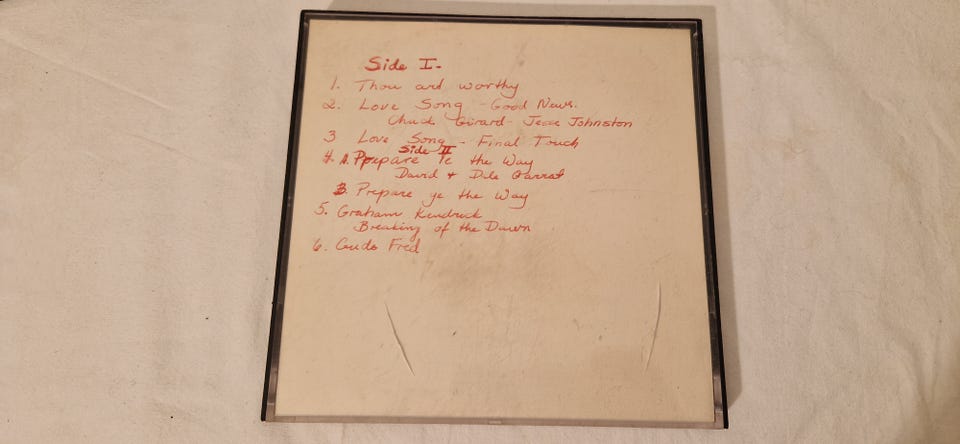 Side I-
1. Thou art worthy
2. Love Song - Good News.
Chuck Girard - Jesse Johnston
3 Love Song - Final Touch
Side II
4. A. Prepare Ye the Way
David + Dale Garrat
B. Prepare ye the Way
5. Graham Kendrick
Breaking of the Dawn
6. Fred